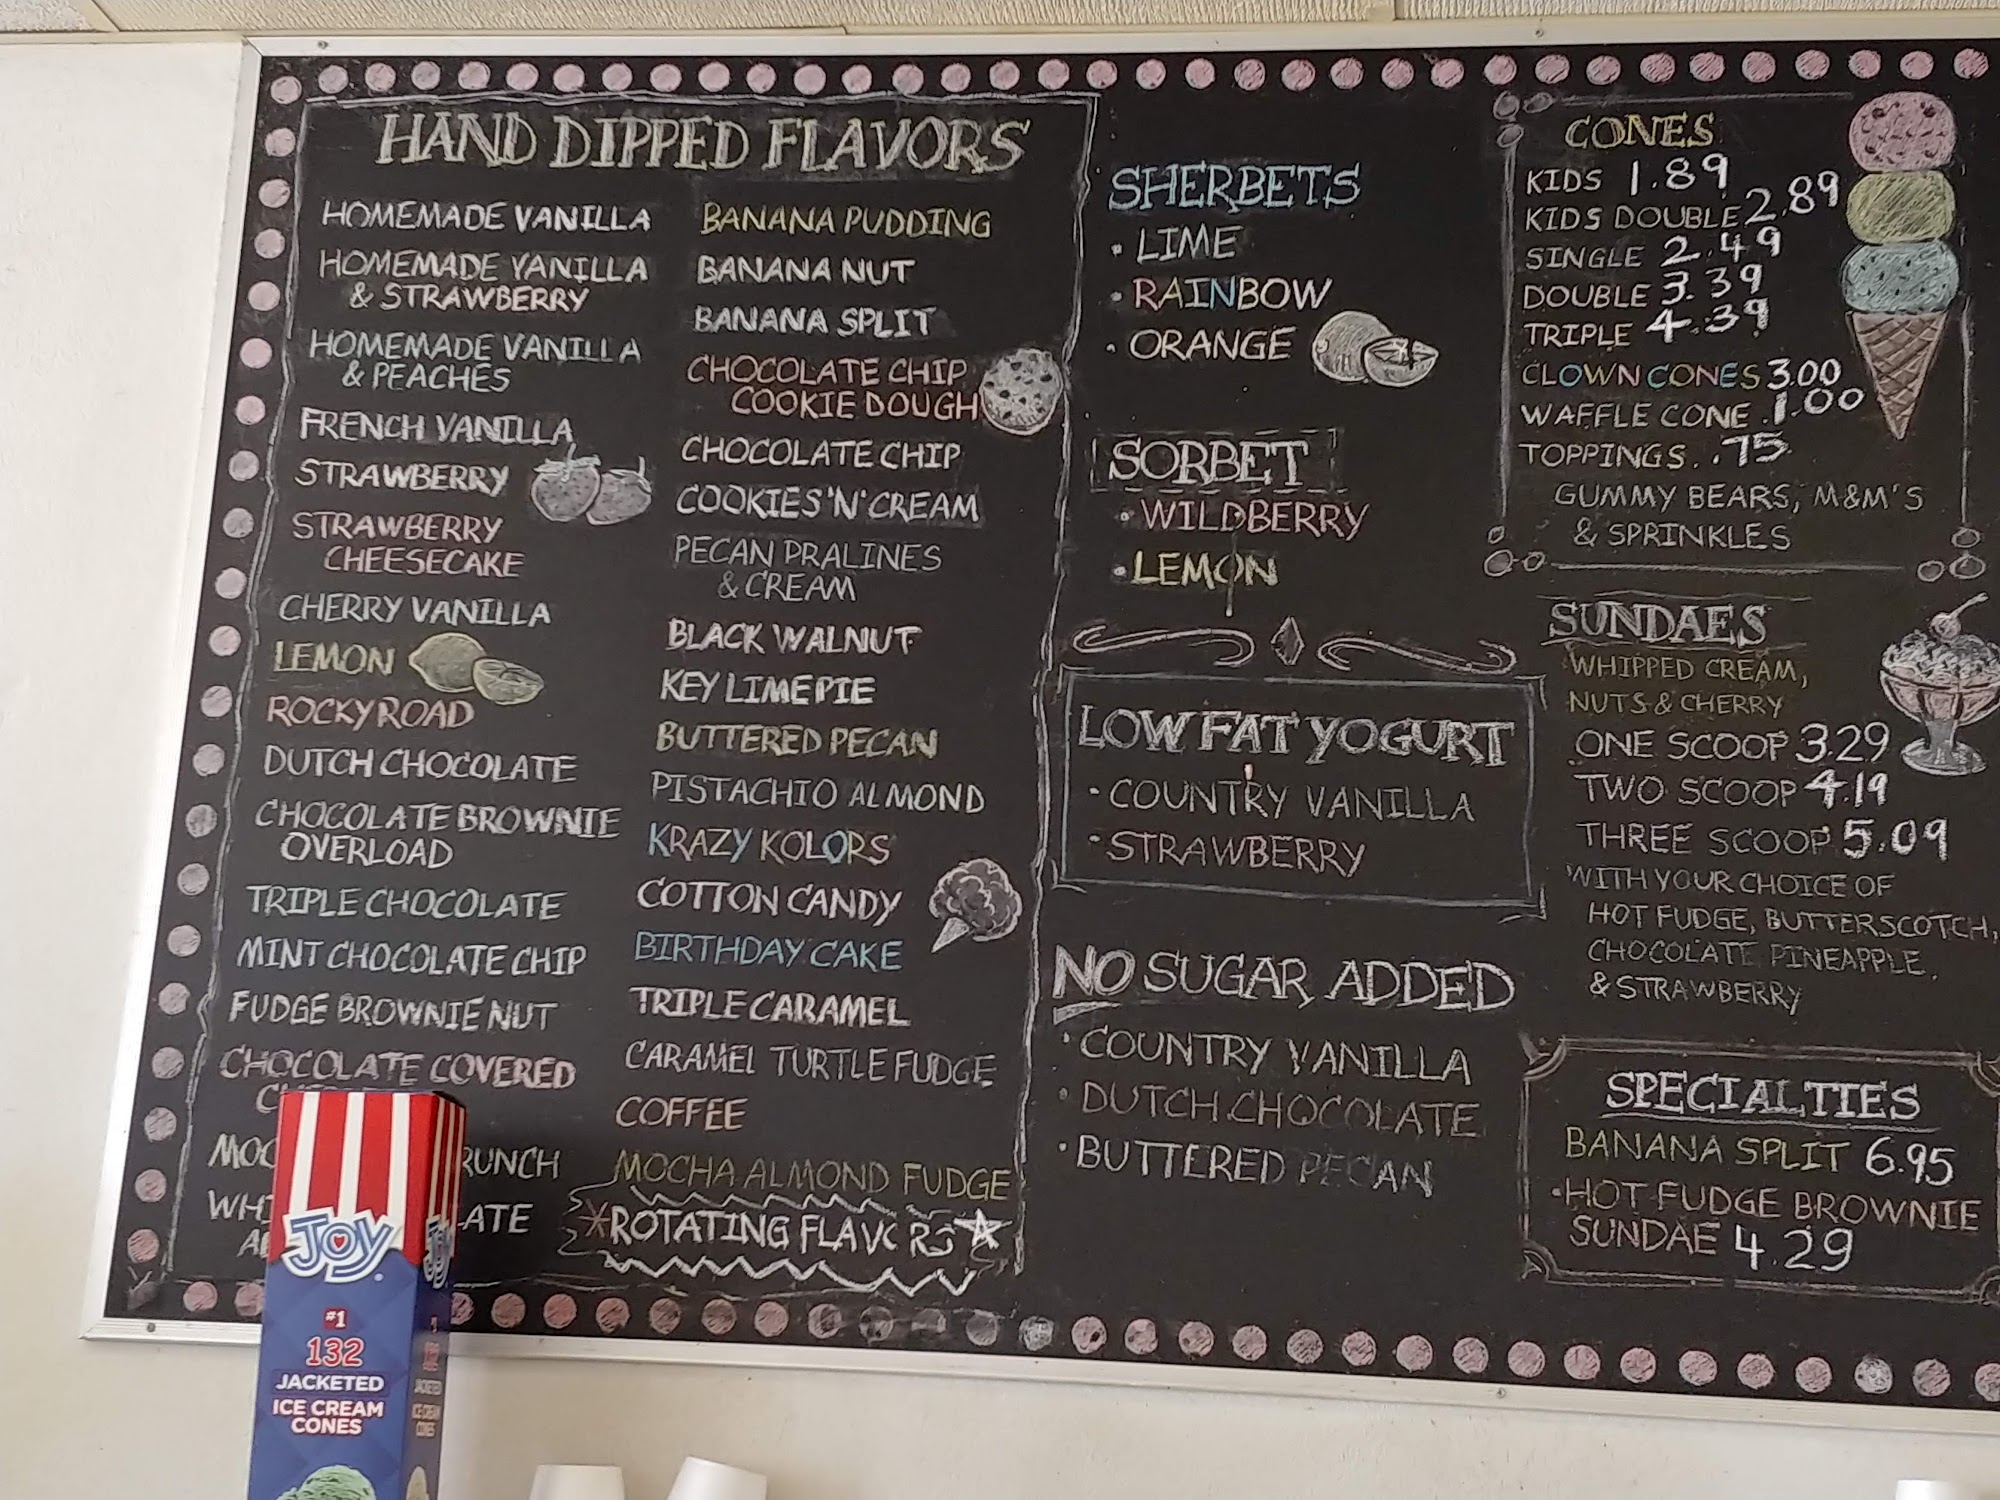 HAND DIPPED FLAVORS
HOMEMADE VANILLA
HOMEMADE VANILLA
& STRAWBERRY
HOMEMADE VANILLA
& PEACHES
FRENCH VANILLA
STRAWBERRY
STRAWBERRY
CHEESECAKE
CHERRY VANILLA
LEMON
ROCKY ROAD
DUTCH CHOCOLATE
CHOCOLATE BROWNIE
OVERLOAD
TRIPLE CHOCOLATE
MINT CHOCOLATE CHIP
FUDGE BROWNIE NUT
CHOCOLATE COVERED
BANANA PUDDING
BANANA NUT
BANANA SPLIT
CHOCOLATE CHIP
COOKIE DOUGH
CHOCOLATE CHIP
COOKIES 'N' CREAM
PECAN PRALINES
& CREAM
BLACK WALNUT
KEY LIME PIE
BUTTERED PECAN
PISTACHIO ALMOND
KRAZY KOLORS
COTTON CANDY
BIRTHDAY CAKE
TRIPLE CARAMEL
CARAMEL TURTLE FUDGE
COFFEE
MOCHA ALMOND FUDGE
ROTATING FLAVORS
SHERBETS
• LIME
• RAINBOW
• ORANGE
SORBET
• WILDBERRY
• LEMON
LOW FAT YOGURT
• COUNTRY VANILLA
• STRAWBERRY
NO SUGAR ADDED
• COUNTRY VANILLA
• DUTCH CHOCOLATE
• BUTTERED PECAN
CONES
KIDS 1.89
KIDS DOUBLE 2.89
SINGLE 2.49
DOUBLE 3.39
TRIPLE 4.39
CLOWN CONES 3.00
WAFFLE CONE 1.00
TOPPINGS . .75
GUMMY BEARS, M&M'S
& SPRINKLES
SUNDAES
WHIPPED CREAM,
NUTS & CHERRY
ONE SCOOP 3.29
TWO SCOOP 4.19
THREE SCOOP 5.09
WITH YOUR CHOICE OF
HOT FUDGE, BUTTERSCOTCH,
CHOCOLATE PINEAPPLE,
& STRAWBERRY
SPECIALTIES
BANANA SPLIT 6.95
• HOT FUDGE BROWNIE
SUNDAE 4.29
JOY
#1
132
JACKETED
ICE CREAM
CONES